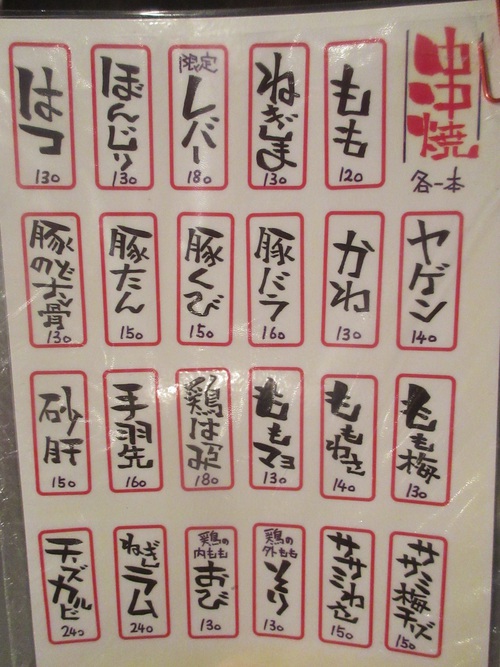 串焼
各一本
もも
120
ねぎま
130
限定
レバー
180
ぼんじり
130
はつ
130
ヤゲン
140
かわ
130
豚バラ
160
豚くび
150
豚たん
150
豚のどナン骨
130
もも梅
130
ももわさ
140
ももマヨ
130
鶏はみ
180
手羽先
160
砂肝
150
ササミ梅チーズ
150
ササミわさ
150
鶏の
外もも
そり
130
鶏の
内もも
おび
130
ねぎラム
240
チーズカルビ
240